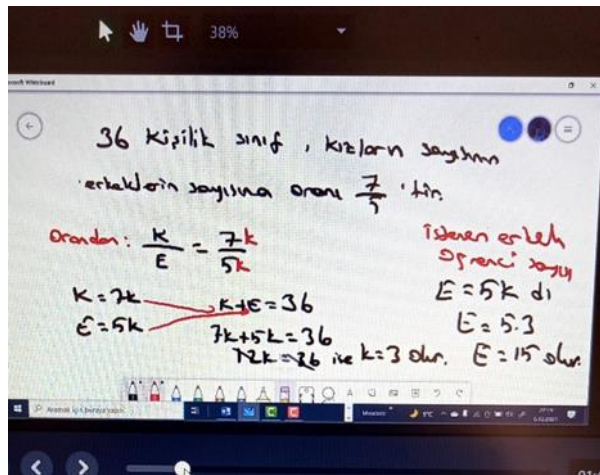 38%
36 kişilik sınıf, kızların sayısının
erkeklerin sayısına oranı 7/5 'tir.
Orandan: K/E = 7k/5k
K = 7k
E = 5k
K+E = 36
7k+5k = 36
12k = 36 ise k = 3 olur.
istenen erkek
öğrenci sayısı
E = 5k dı
E = 5.3
E = 15 olur.
Aramak için buraya yazın